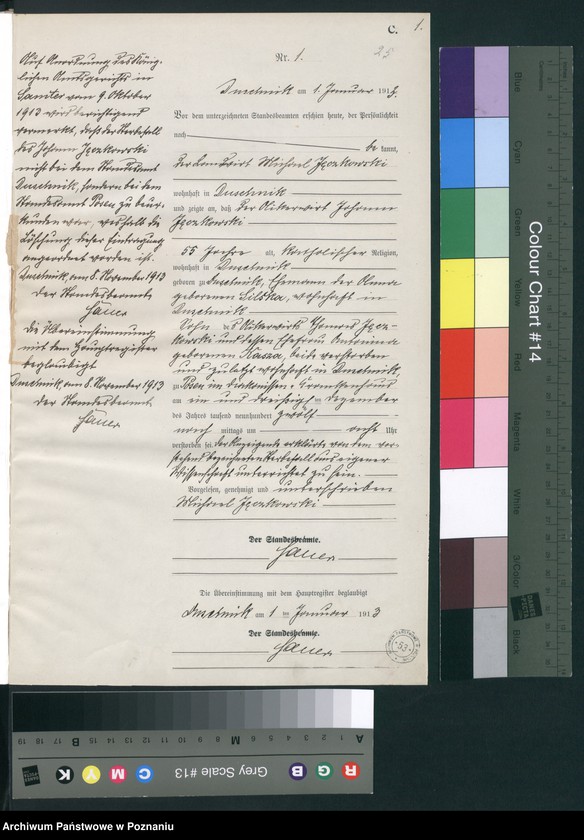 C. 1.
25
Nr. 1.
Duschnik am 1. Januar 1913.
Vor dem unterzeichneten Standesbeamten erschien heute, der Persönlichkeit
nach
be kannt,
der Landwirt Michael Jęczkowski
wohnhaft in Duschnik
und zeigte an, daß der Ackerwirt Johann
Jęczkowski
55 Jahre alt, katholischer Religion,
wohnhaft in Duschnik
geboren zu Duschnik, Ehemann der Anna
geborenen Lilska, wohnhaft in
Duschnik
Sohn des Ackerwirts Jęcz-
kowski und dessen Ehefrau Antonina
geborenen beide verstorben
und zuletzt wohnhaft in Duschnik,
zu Posen im Diakonissen-Krankenhaus
am ein und dreißigsten Dezember
des Jahres tausend neunhundert zwölf
nach mittags um acht Uhr
verstorben sei. Der Anzeigende erklärte von dem vor-
stehend bezeichneten Sterbefall aus eigener
Wissenschaft unterrichtet zu sein.
Vorgelesen, genehmigt und unterschrieben
Michael Jęczkowski
Der Standesbeamte.
Die Übereinstimmung mit dem Hauptregister beglaubigt
Duschnik am 1 ten Januar 1913
Der Standesbeamte.
53
Auf Anordnung des König-
lichen Amtsgerichts in
Samter vom 9. Oktober
1913 wird berichtigend
vermerkt, daß der Sterbefall
des Johann Jęczkowski
nicht bei dem Standesamt
Duschnik, sondern bei dem
Standesamt Posen zu beur-
kunden war, weshalb die
Löschung dieser Eintragung
angeordnet worden ist.
Duschnik, am 8. November 1913
Der Standesbeamte
Die Übereinstimmung
mit dem Hauptregister
beglaubigt
Duschnik, am 8. November 1913
Der Standesbeamte
Colour Chart #14
Blue
Cyan
Green
Yellow
Red
Magenta
White
3/Color
Black
Centimetres
DANES PICTA
Grey Scale #13
R G B C M Y K
A 1 2 3 4 5 6 M 8 9 10 11 12 13 14 15 B 17 18 19
Archiwum Państwowe w Poznaniu